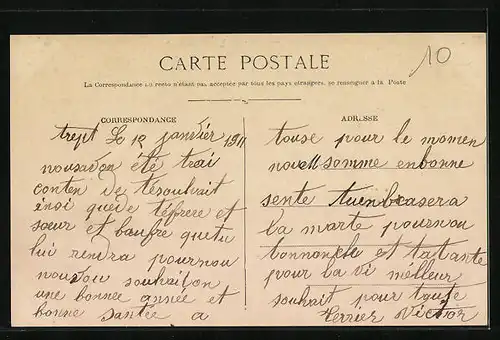 10
CARTE POSTALE
La Correspondance au recto n'étant pas acceptée par tous les pays étrangers, se renseigner à la Poste
CORRESPONDANCE
trept Le 19 janvier 1911
nousavon été trai
conten de tesouhait
insi quede tefrere et
sœur et beaufre quetu
lui rendra pournou
nousou souhaiton
une bonnee année et
bonne santee a
ADRESSE
touse pour le momen
nous somme enbonne
sente tuenbrasera
la marte pournou
tononcle et tatante
pour la vi meilleur
souhait pour toute
Victor